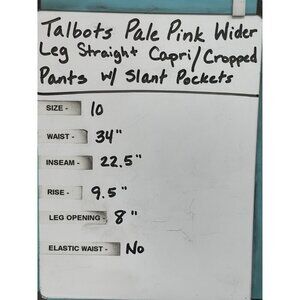 Talbots Pale Pink Wider
Leg Straight Capri/Cropped
Pants w/ Slant Pockets
SIZE - 10
WAIST - 34"
INSEAM - 22.5"
RISE - 9.5"
LEG OPENING - 8"
ELASTIC WAIST - No